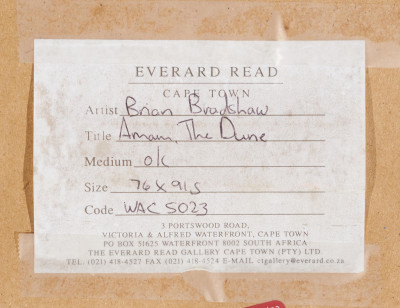 EVERARD READ
CAPE TOWN
Artist Brian Bradshaw
Title Amam, The Dune
Medium o/c
Size 76 x 91,5
Code WAC 5023
3 PORTSWOOD ROAD,
VICTORIA & ALFRED WATERFRONT, CAPE TOWN
PO BOX 51625 WATERFRONT 8002 SOUTH AFRICA
THE EVERARD READ GALLERY CAPE TOWN (PTY) LTD.
TEL (021) 418-4527 FAX (021) 418-4524 E-MAIL ctgallery@everard.co.za